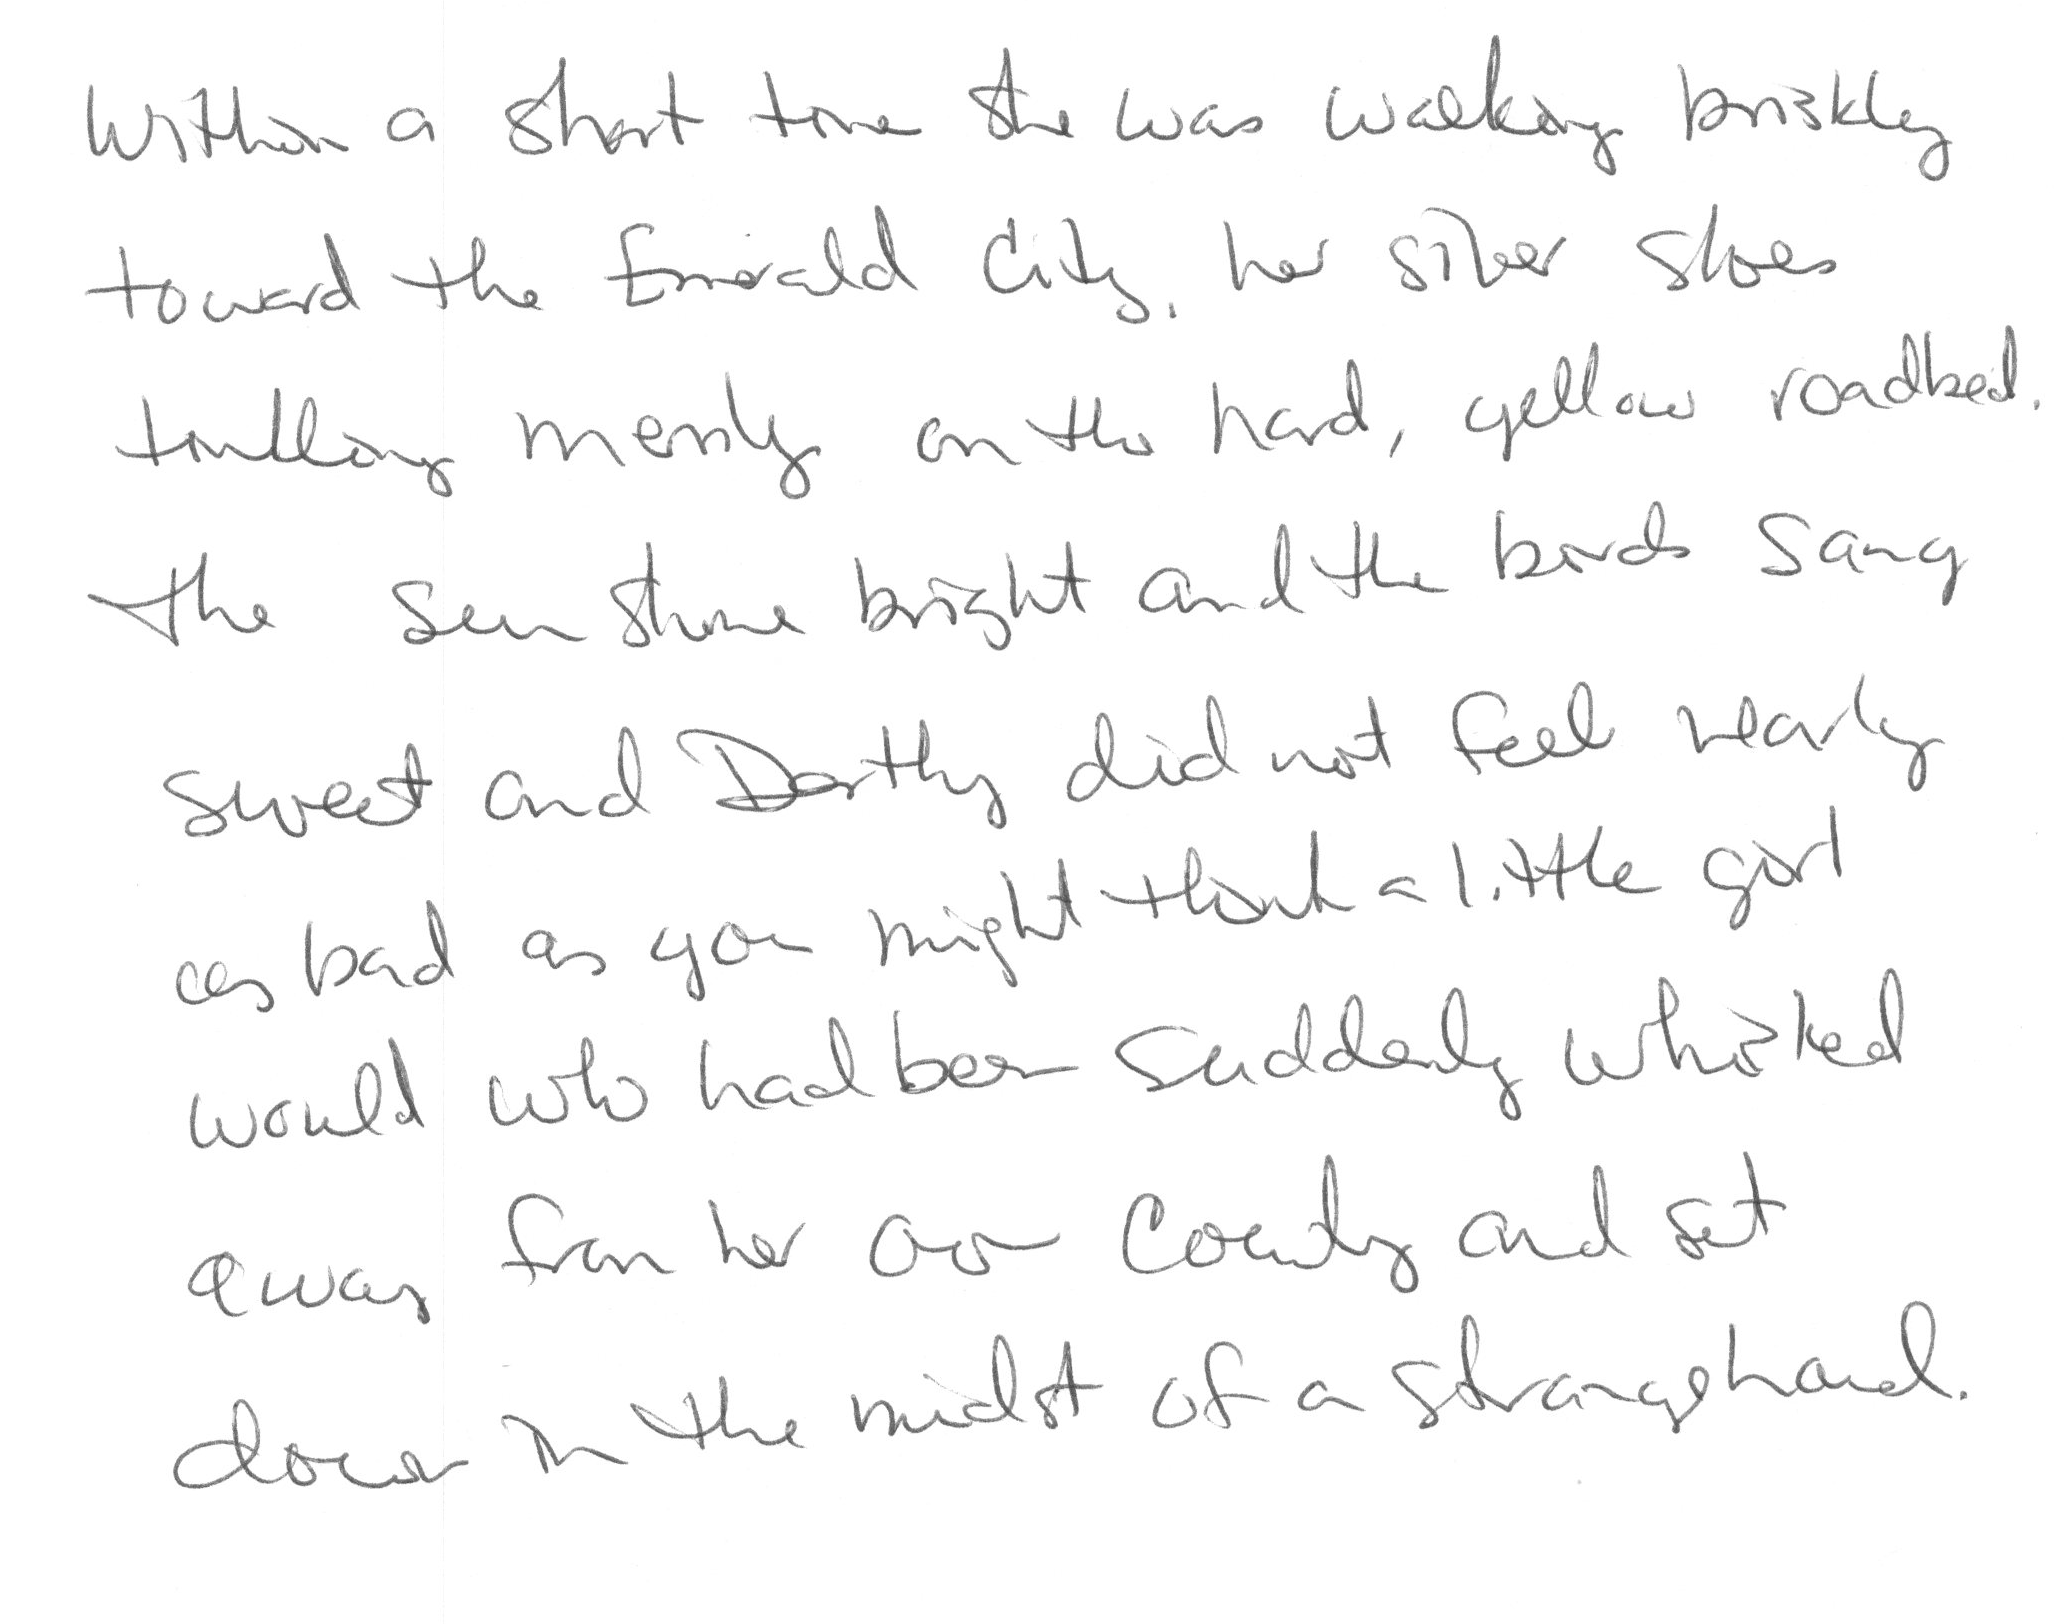 Within a short time she was walking briskly
toward the Emerald City, her silver shoes
tinkling merrily on the hard, yellow roadbed.
The sun shone bright and the birds sang
sweet and Dorthy did not feel nearly
as bad as you might think a little girl
would who had been suddenly whisked
away from her own country and set
down in the midst of a strange land.